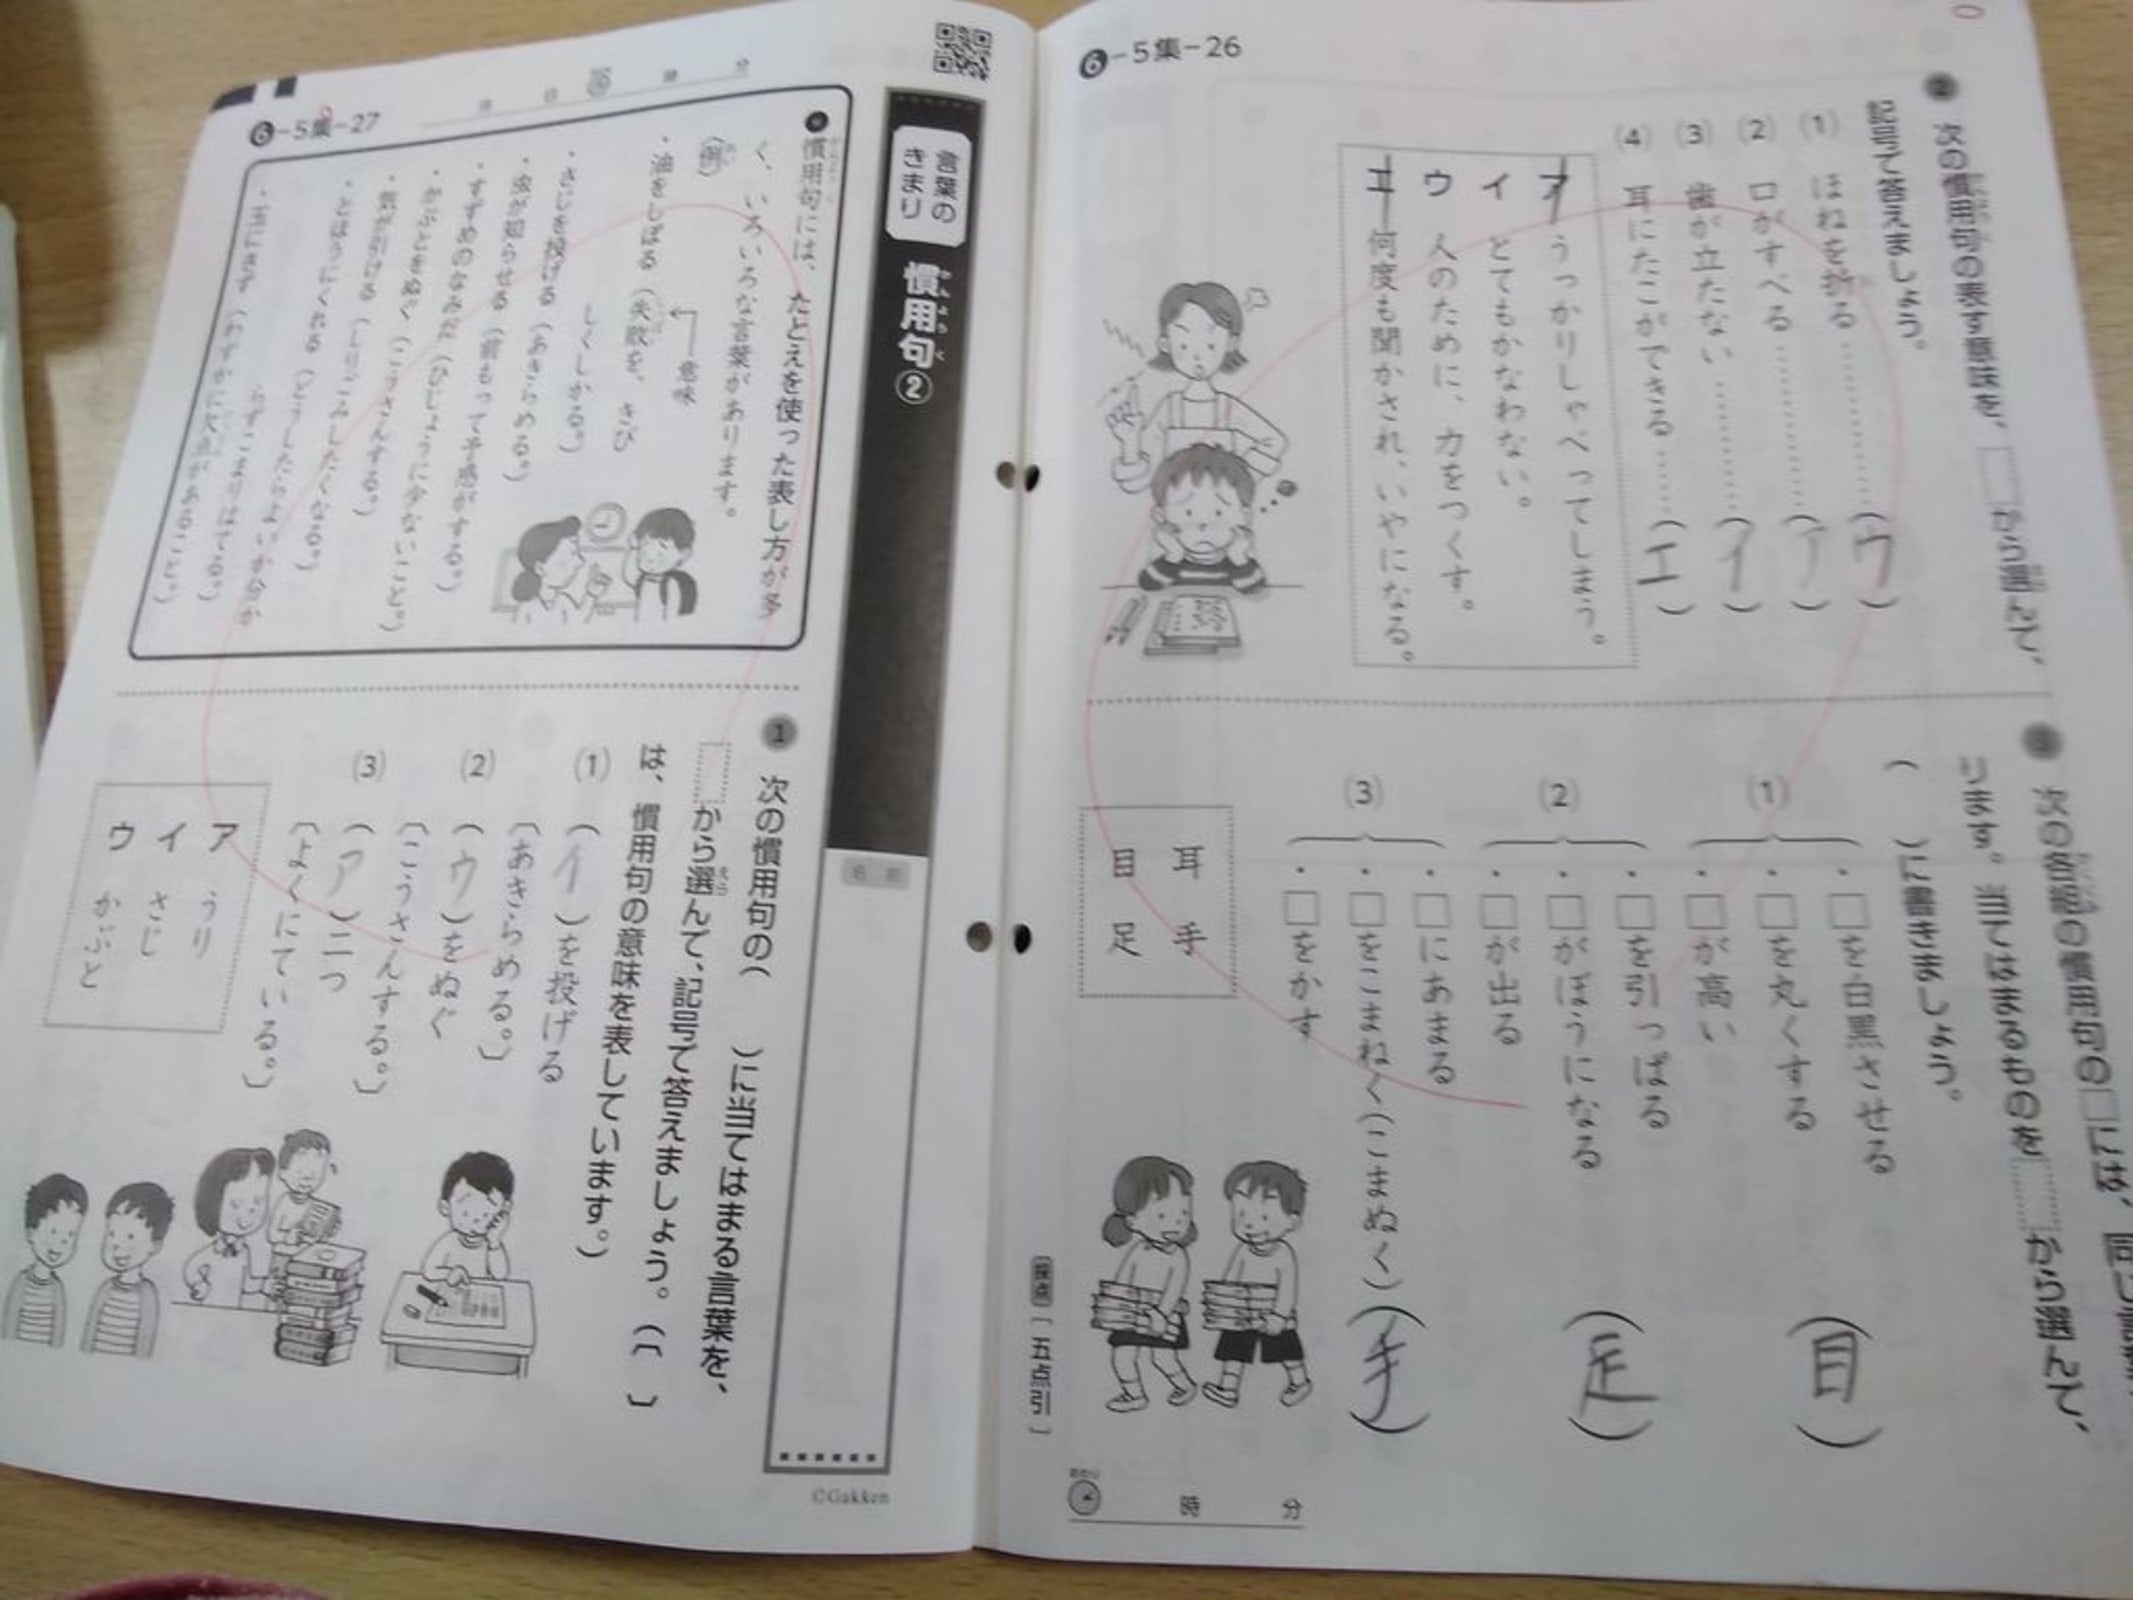 6-5集-26
② 次の慣用句の表す意味を、から選んで、
記号で答えましょう。
(1) ほねを折る…………(ウ)
(2) 口がすべる…………(ア)
(3) 歯が立たない…………(イ)
(4) 耳にたこができる…………(エ)
ア うっかりしゃべってしまう。
イ とてもかなわない。
ウ 人のために、力をつくす。
エ 何度も聞かされ、いやになる。
次の各組の慣用句の□には、同じ言葉が
ります。当てはまるものをから選んで、
( )に書きましょう。
(1)
・□を白黒させる
・□を丸くする
・□が高い
(目)
(2)
・□を引っぱる
・□がぼうになる
・□が出る
(足)
(3)
・□にあまる
・□をこまねく(こまぬく)
・□をかす
(手)
耳 手
目 足
採点
[五点引]
おわり
時 分
言葉の
きまり
慣用句②
かんようく
名前
©Gakken
6-5集-27
●慣用句には、たとえを使った表し方が多
く、いろいろな言葉があります。
(例)
意味
・油をしぼる(失敗を、きび
しくしかる。)
・さじを投げる(あきらめる。)
・虫が知らせる(前もって予感がする。)
・すずめのなみだ(ひじょうに少ないこと。)
・かぶとをぬぐ(こうさんする。)
・気が引ける(しりごみしたくなる。)
・とほうにくれる(どうしたらよいか分か
らずこまりはてる。)
・玉にきず(わずかに欠点があること。)
① 次の慣用句の( )に当てはまる言葉を、
から選んで、記号で答えましょう。(〔 〕
は、慣用句の意味を表しています。)
(1) (イ)を投げる
〔あきらめる。〕
(2) (ウ)をぬぐ
〔こうさんする。〕
(3) (ア)二つ
〔よくにている。〕
ア うり
イ さじ
ウ かぶと